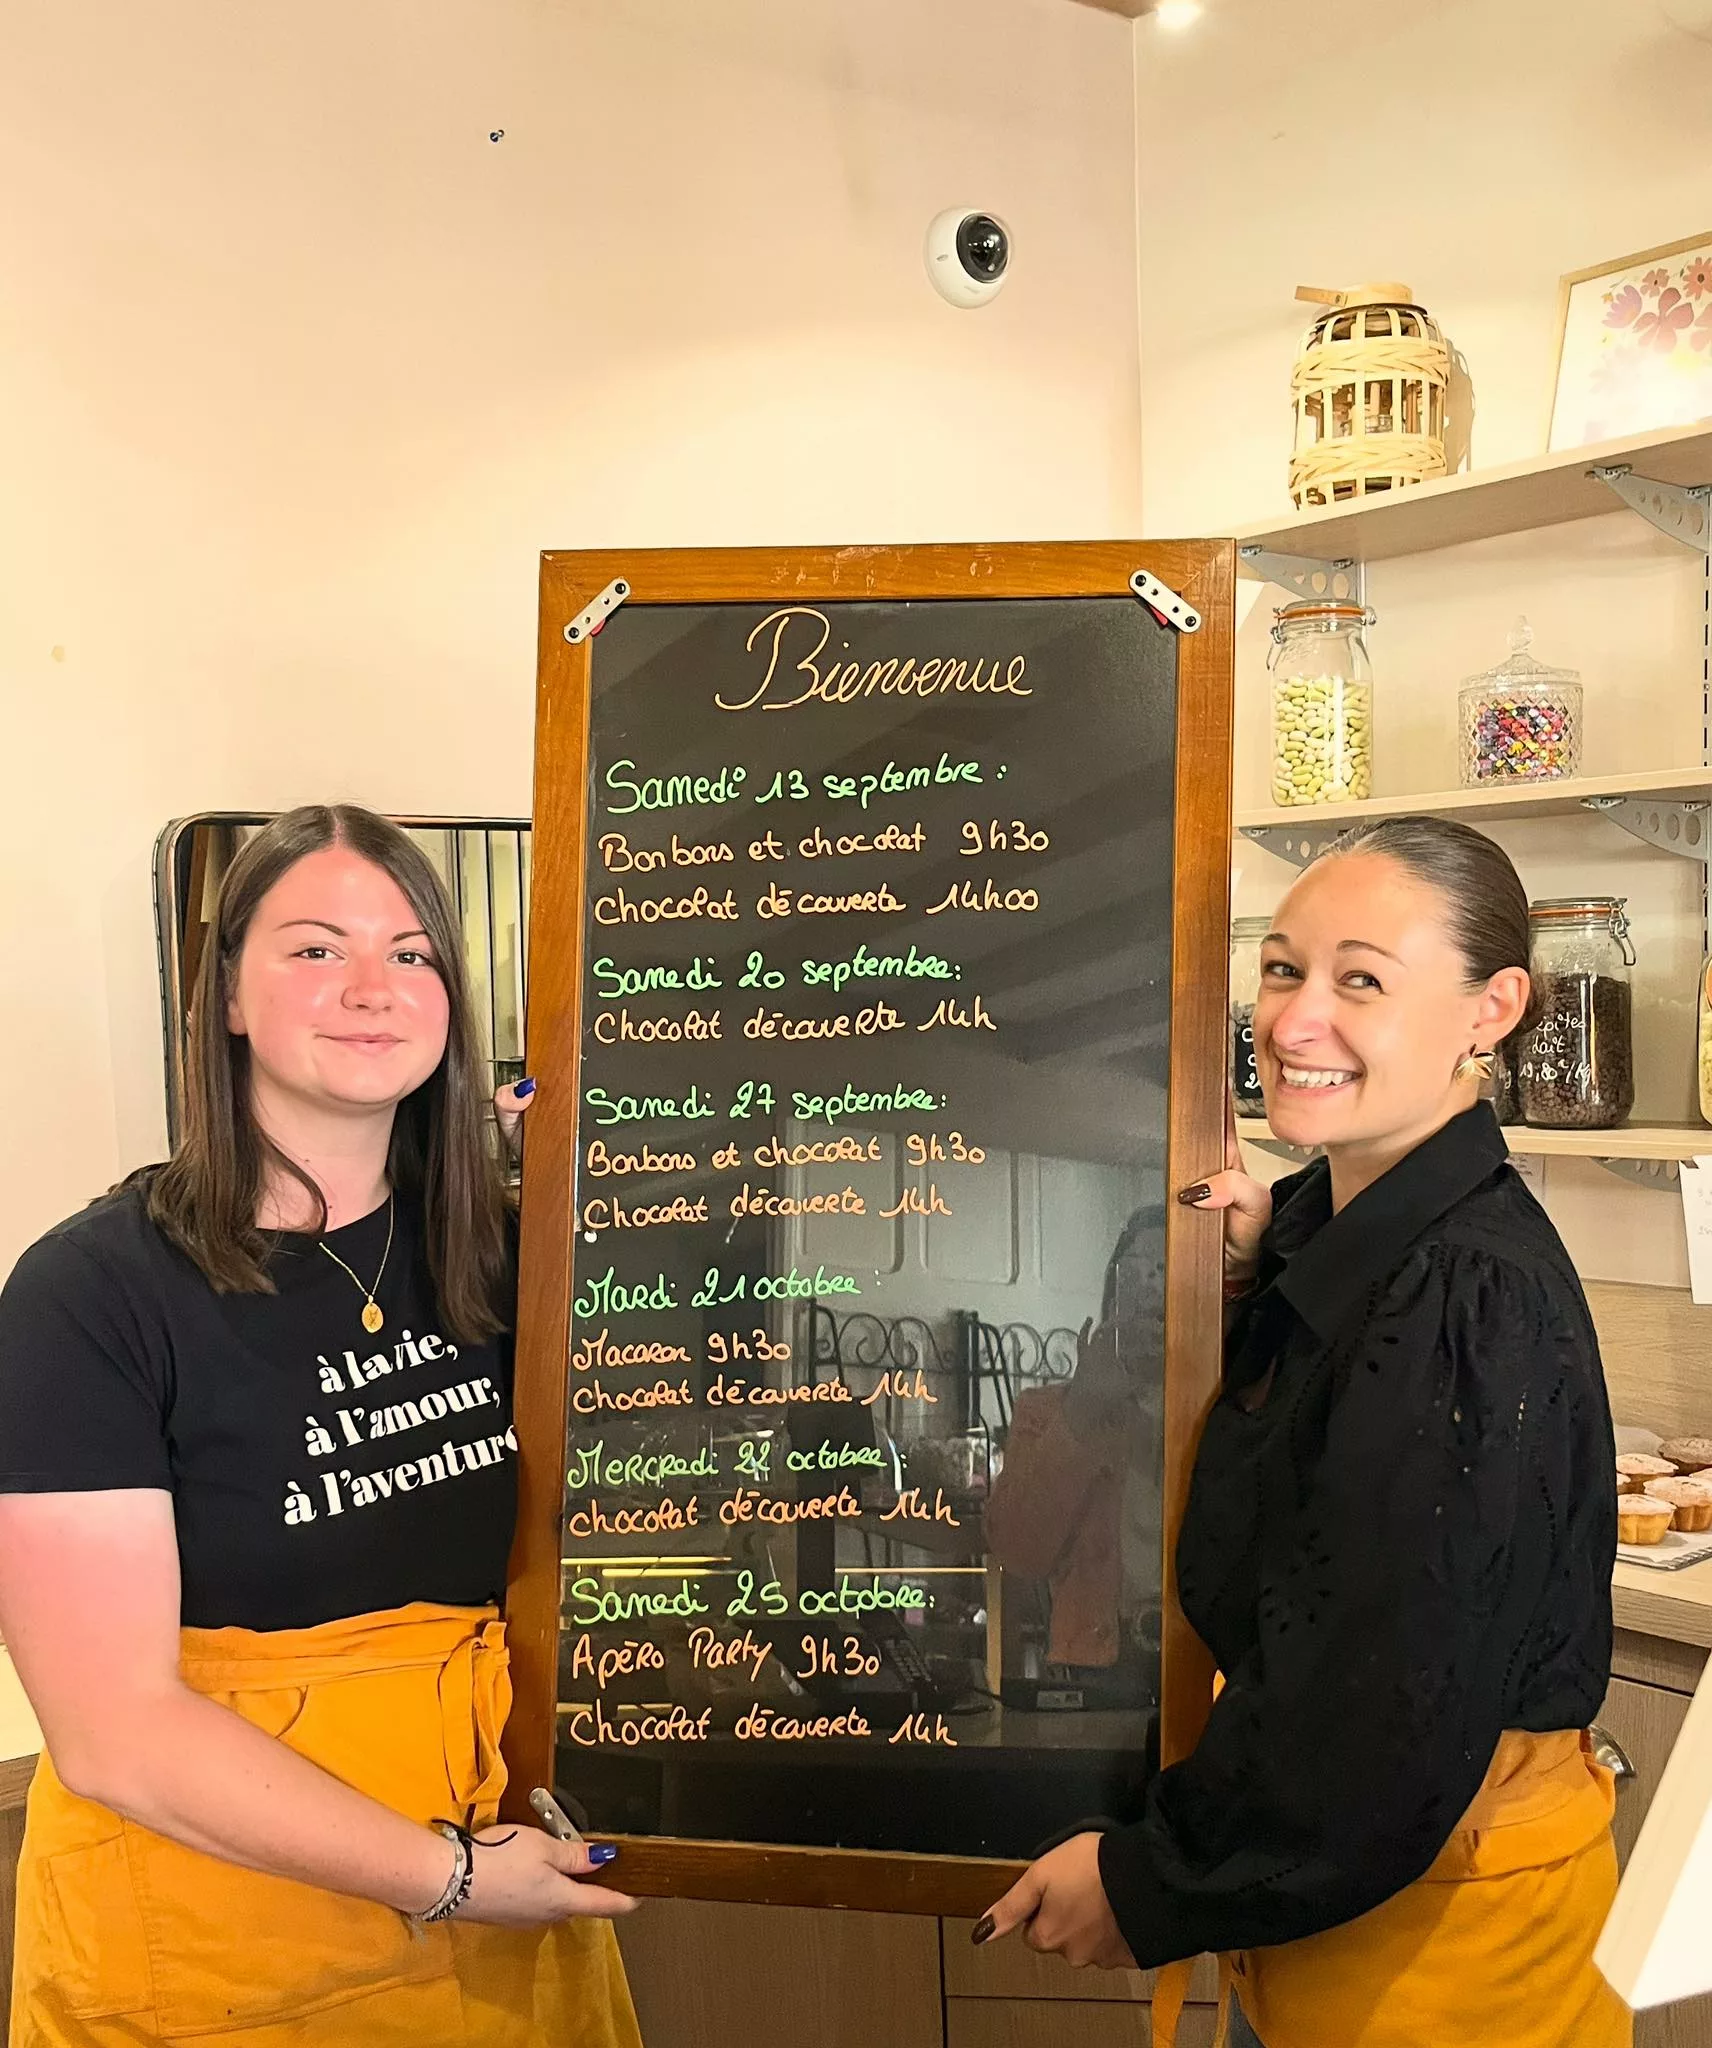 Bienvenue
Samedi 13 septembre :
Bonbons et chocolat 9h30
Chocolat découverte 14h00
Samedi 20 septembre :
Chocolat découverte 14h
Samedi 27 septembre :
Bonbons et chocolat 9h30
Chocolat découverte 14h
Mardi 21 octobre :
Macaron 9h30
Chocolat découverte 14h
Mercredi 22 octobre :
Chocolat découverte 14h
Samedi 25 octobre :
Apéro Party 9h30
Chocolat découverte 14h
à la vie,
à l'amour,
à l'aventure
lait
19,80€/Kg